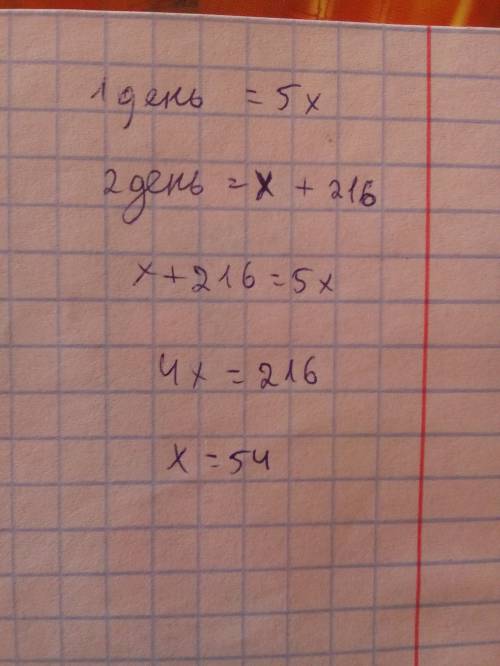 1 день = 5x
2 день = x + 216
x + 216 = 5x
4x = 216
x = 54